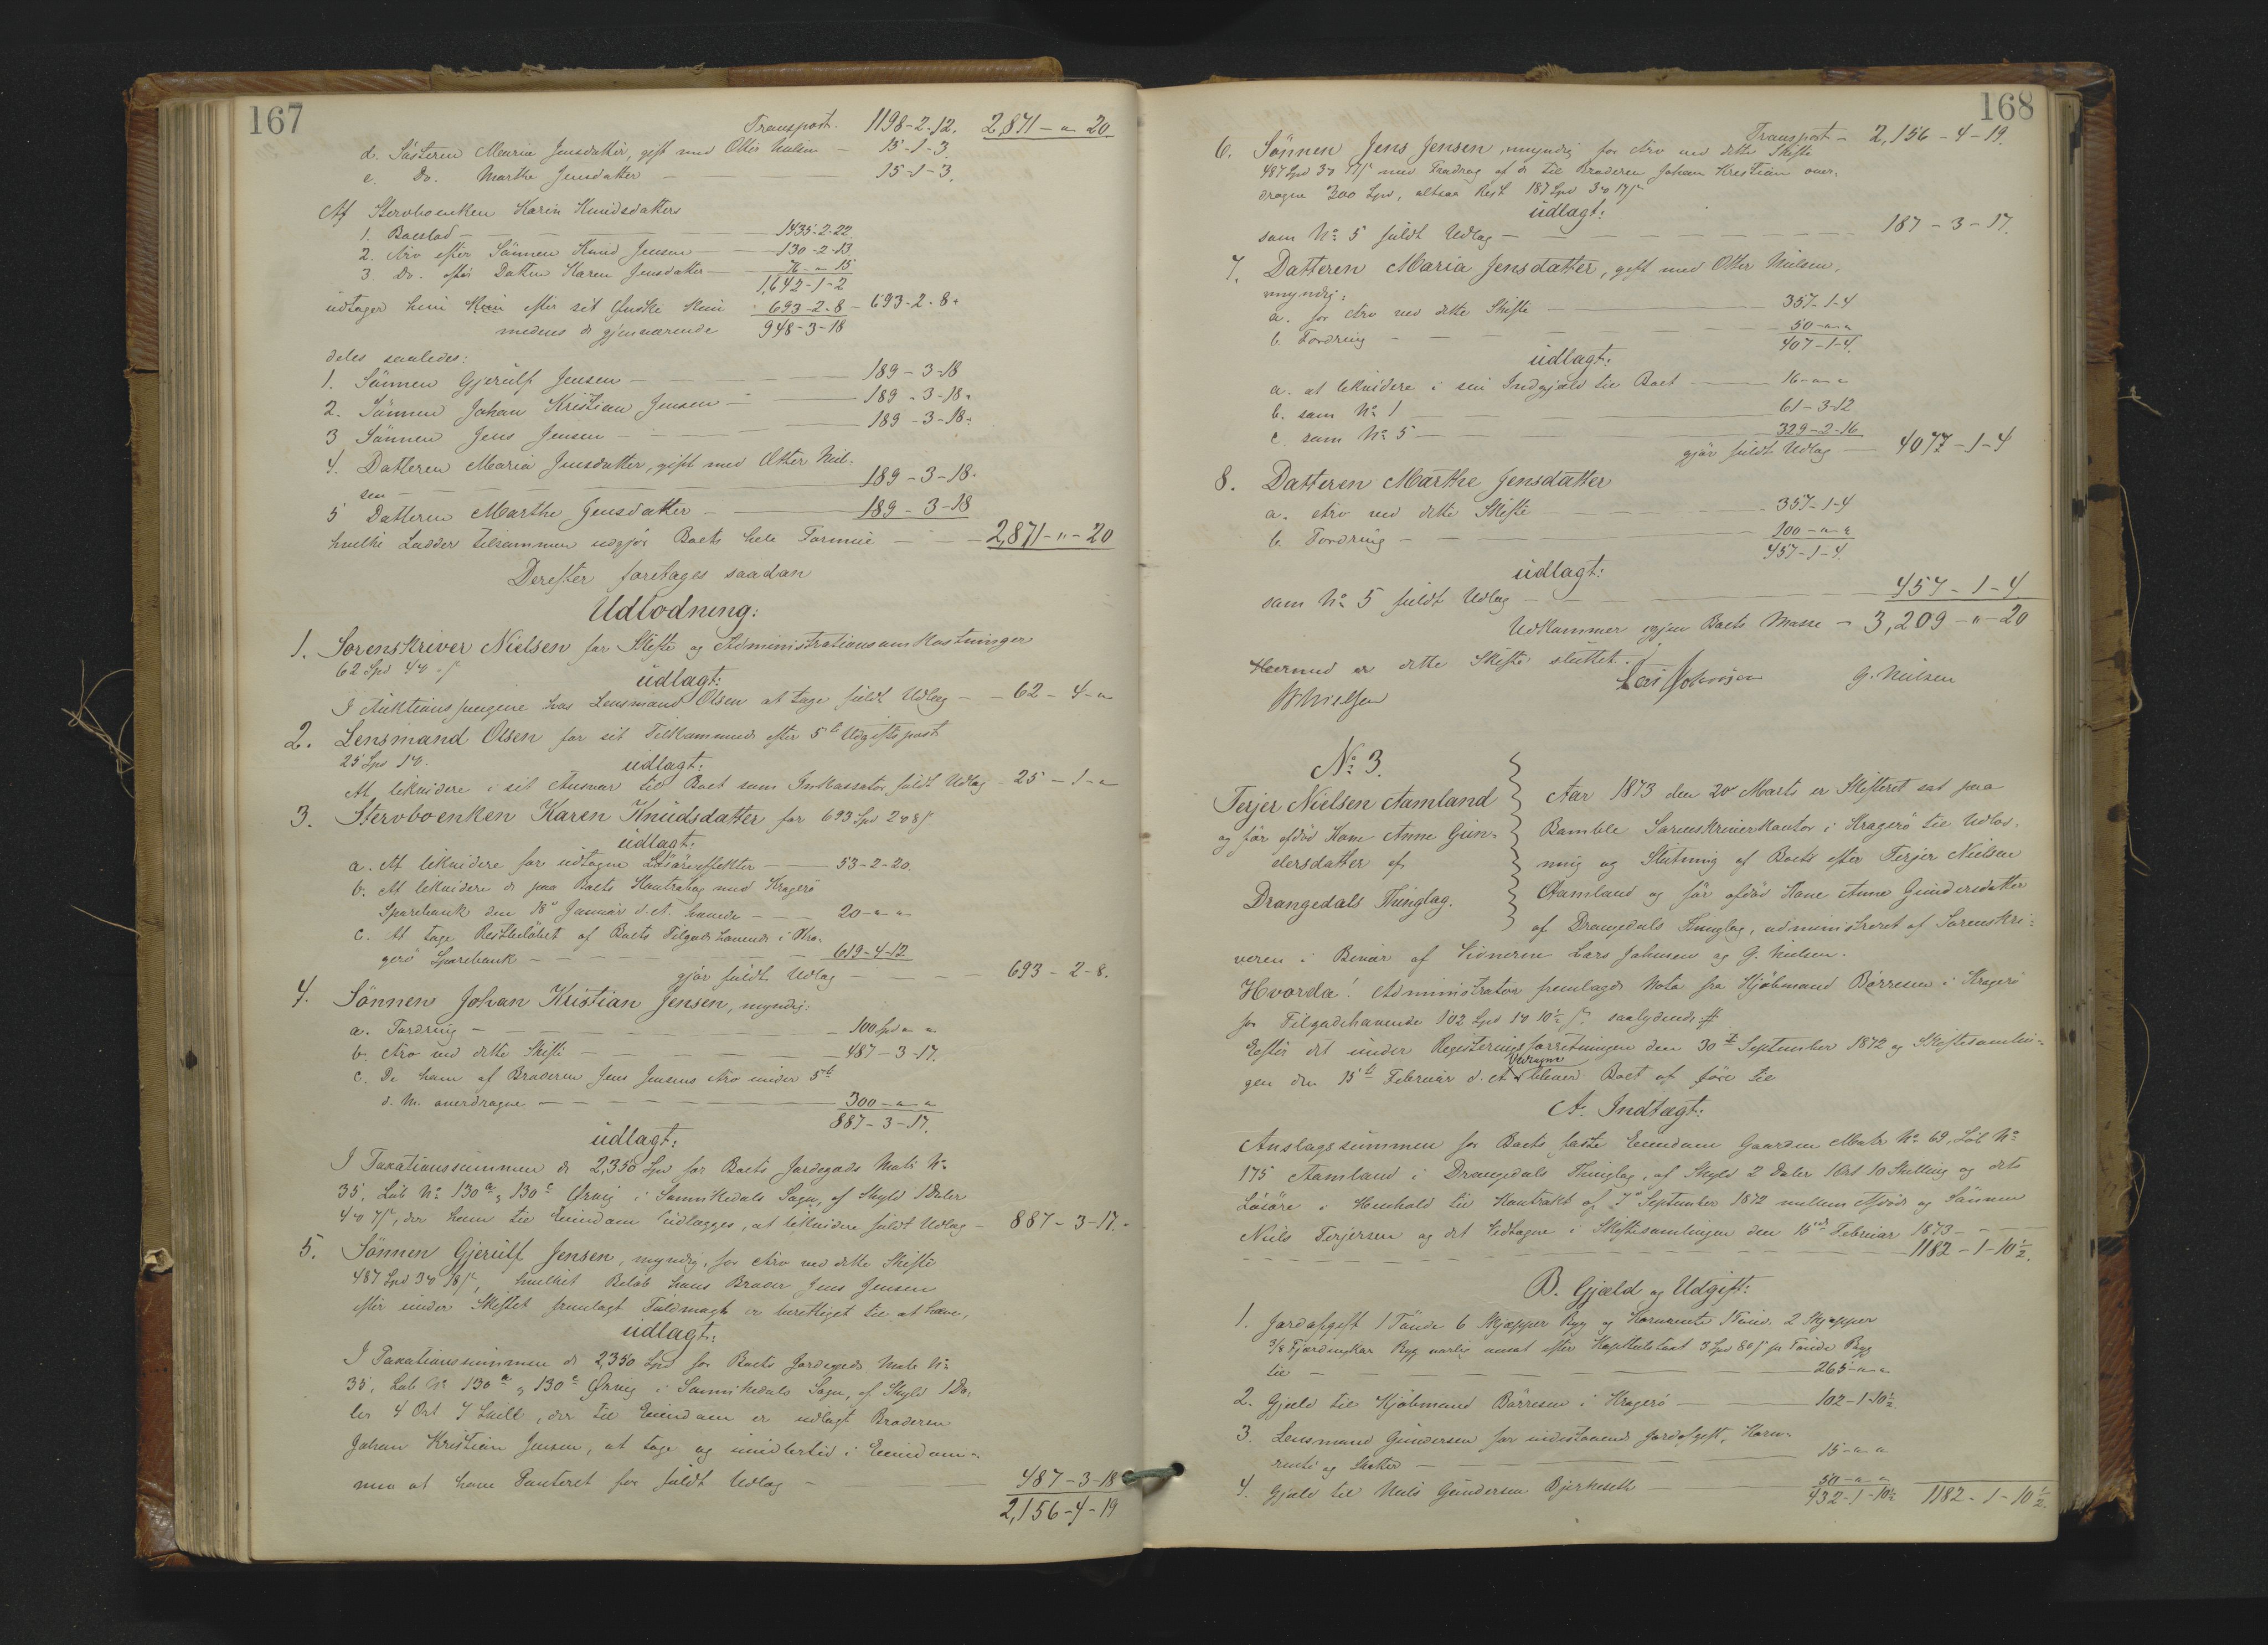 167
Transport. 1198-2-12. 2,871 - " - 20
d. Søsteren Maria Jensdatter, gift med Otter Nielsen - 15-1-3
e. Do. Marthe Jensdatter - 15-1-3.
Af Stervboenken Karin Knudsdatters
1. Boeslod - 1435-2-22
2. Arv efter Sønnen Knud Jensen - 130-2-13
3. Do. efter Datter Karen Jensdatter - 76-"-15
1,642-1-2
udtager hun efter sit Ønske kun 693-2-8 - 693-2-8.
medens de gjenværende 948-3-18
deles saaledes:
1. Sønnen Gjerulf Jensen - 189-3-18
2. Sønnen Johan Kristian Jensen - 189-3-18.
3 Sønnen Jens Jensen - 189-3-18.
4. Datteren Maria Jensdatter, gift med Otter Niel-
sen - 189-3-18.
5 Datteren Marthe Jensdatter - 189-3-18
hvilke Lodder tilsammen udgjør Boets hele Formue - 2,871-"-20
Derefter foretages saadan
Udlodning:
1. Sorenskriver Nielsen for Skifte og Administrationsomkostninger
62 Spd 4 -
udlagt:
I Auktionspengene hos Lensmand Olsen at tage fuldt Udlæg - 62-4-"
2. Lensmand Olsen for sit Tilkommende efter 5te Udgiftspost
25 Spd 1
udlagt:
At likvidere i sit Ansvar til Boet som Inkassator fuldt Udlæg - 25-1-"
3. Stervboenken Karen Knudsdatter for 693 Spd 2 8
udlagt:
a. At likvidere for udtagne Løsøreeffekter - 53-2-20.
b. At likvidere de paa Boets Kontrabog med Kragerø
Sparebank den 18de Januar d. A. hævede - 20-"-"
c. At tage Restbeløbet af Boets Tilgodehavende i Kra-
gerø Sparebank - 619-4-12
gjør fuldt Udlæg - 693-2-8.
4. Sønnen Johan Kristian Jensen, myndig:
a. Fordring - 100 Spd " "
b. Arv ved dette Skifte - 487-3-17.
c. De ham af Broderen Jens Jensens Arv under 5te
d. M. overdragne - 300-"-"
887-3-17.
udlagt:
I Taxationssummen de 2,350 Spd for Boets Jordegods Matr No
35, Løb No 130a & 130c Ørvig i Sannikedals Sogn, af Skyld 1 Daler
4 7, der ham til Eiendom udlægges, at likvidere fuldt Udlæg - 887-3-17.
5. Sønnen Gjerulf Jensen, myndig, for Arv ved dette Skifte
487 Spd 3 18, hvilket Beløb hans Broder Jens Jensen
efter under Skiftet fremlagt Fuldmagt er berettiget til at hæve,
udlagt:
I Taxationssummen de 2,350 Spd for Boets Jordegods Matr No
35, Løb No 130a & 130c Ørvig i Sannikedals Sogn, af Skyld 1 Da-
ler 4 Ort 7 Skill, der til Eiendom er udlagt Broderen
Johan Kristian Jensen, at tage og imidlertid i Eiendom-
men at have Panteret for fuldt Udlæg - 487-3-18
2,156-4-19
168
Transport - 2,156-4-19.
6. Sønnen Jens Jensen, myndig for Arv ved dette Skifte
487 Spd 3 17 med Fradrag af de til Broderen Johan Kristian over-
dragne 300 Spd, altsaa Rest 187 Spd 3 17
udlagt:
som No 5 fuldt Udlæg - 187-3-17.
7. Datteren Maria Jensdatter, gift med Otter Nielsen,
myndig:
a. for Arv ved dette Skifte - 357-1-4
b. Fordring - 50-"-"
407-1-4.
udlagt:
a. at likvidere i sin Indgjæld til Boet - 16-"-"
b. som No 1 - 61-3-12
c. som No 5 - 329-2-16
gjør fuldt Udlæg - 407-1-4
8. Datteren Marthe Jensdatter
a. Arv ved dette Skifte - 357-1-4
b. Fordring - 100-"-"
457-1-4.
udlagt:
som No 5 fuldt Udlæg - 457-1-4
Udkommer igjen Boets Masse - 3,209-"-20
Hermed er dette Skifte sluttet.
Nielsen Lars Johnsen G. Nielsen
No 3.
Terjer Nielsen Aamland
og før afdød Kone Anne Gun-
dersdatter af
Drangedals Thinglag.
Aar 1873 den 20de Marts er Skifteret sat paa
Bamble Sorenskriverkontor i Kragerø til Udlod-
ning og Slutning af Boet efter Terjer Nielsen
Aamland og før afdød Kone Anne Gundersdatter
af Drangedals Thinglag, administreret af Sorenskri-
veren i Bivær af Vidnerne Lars Johnsen og G. Nielsen.
Hvorda! Administrator fremlagde Nota fra Kjøbmand Børresen i Kragerø
for Tilgodehavende 102 Spd 1 10½, saalydende: #
Efter det under Registeringsforretningen den 30te September 1872 og Skiftesamlin-
gen den 15de Februar d. A. Vedtagne bliver Boet at føre til
A. Indtægt:
Anslagssummen for Boets faste Eiendom Gaarden Matr No 69, Løb No
175 Aamland i Drangedals Thinglag, af Skyld 2 Daler 1 Ort 10 Skilling og dets
Løsøre i Henhold til Kontrakt af 7de September 1872 mellem Afdøde og Sønnen
Niels Terjersen og det Vedtagne i Skiftesamlingen den 15de Februar 1873 -
1182-1-10½.
B. Gjæld og Udgift:
1. Jordafgift 1 Tønde 6 Skjæpper Byg og Kornrente 1 Tønde 2 Skjæpper
3/8 Fjerdingkar Byg aarlig ansat efter Kapitelstaxt 3 Spd 80 pr Tønde Byg
til - 265-"-"
2. Gjæld til Kjøbmand Børresen i Kragerø - 102-1-10½
3. Lensmand Gundersen for indestaaende Jordafgift, Korn-
rente og Skatter - 15-"-"
4. Gjæld til Niels Gundersen Bjerkeseth - 50-"-"
432-1-10½ 1182-1-10½.